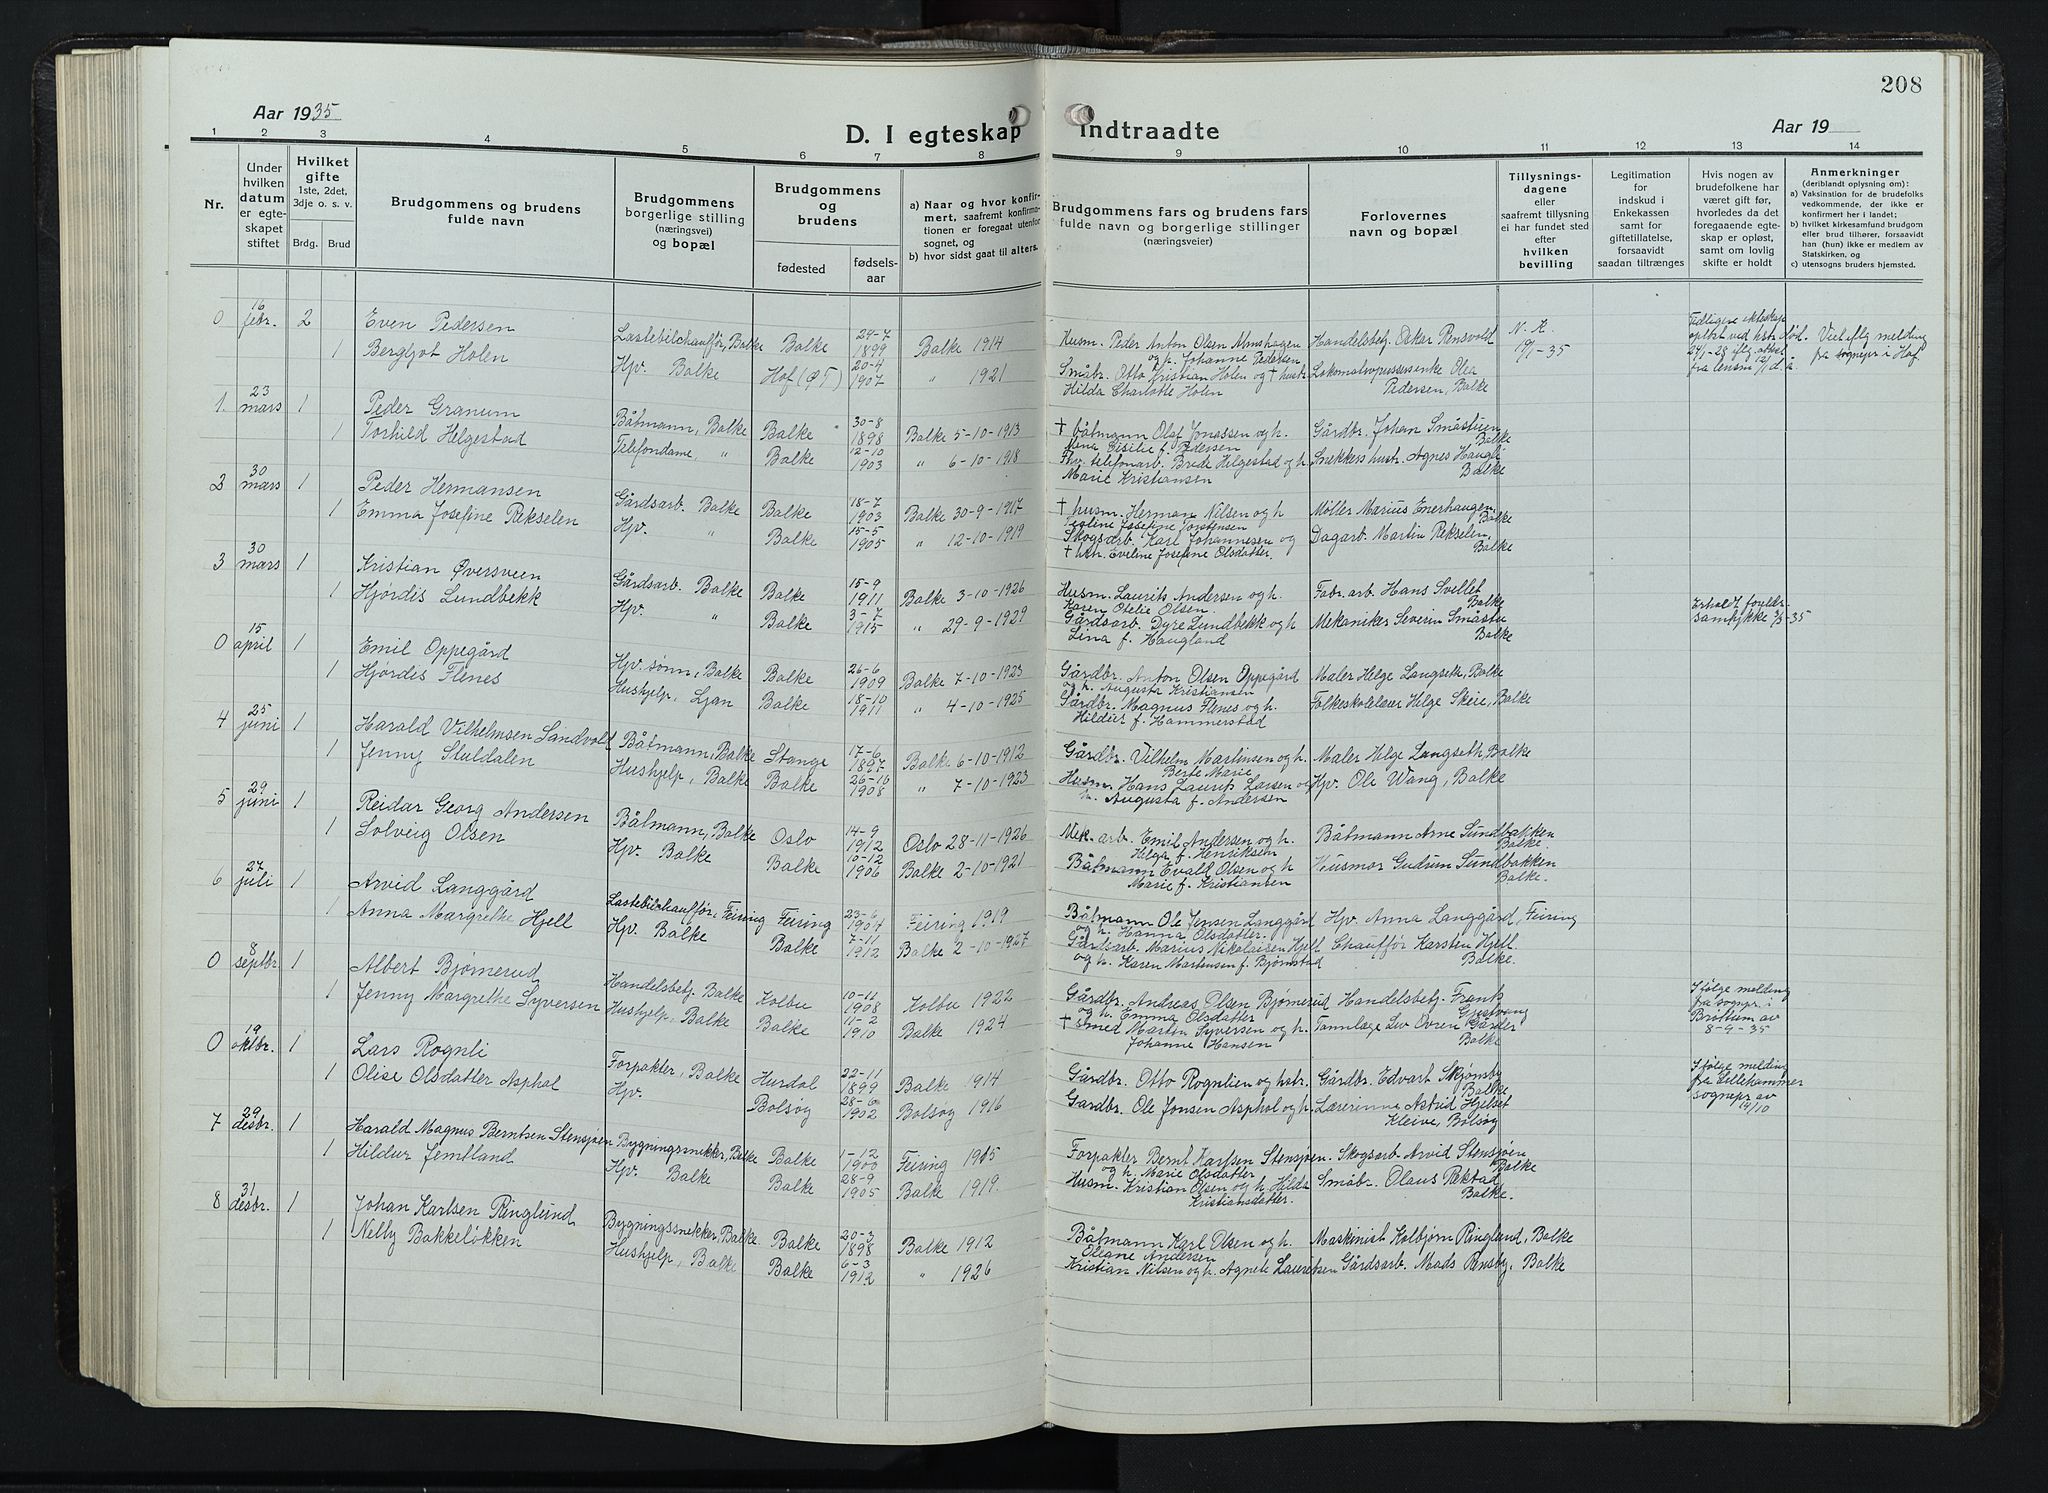 208
Aar 1935
D. I egteskap indtraadte
Aar 19
1 2 3 4 5 6 7 8 9 10 11 12 13 14
Nr.
Under hvilken datum er egteskapet stiftet
Hvilket gifte 1ste, 2det, 3dje o. s. v.
Brdg. Brud
Brudgommens og brudens fulde navn
Brudgommens borgerlige stilling (næringsvei) og bopæl
Brudgommens og brudens
fødested fødselsaar
a) Naar og hvor konfirmert, saafremt konfirmationen er foregaat utenfor sognet, og
b) hvor sidst gaat til alters.
Brudgommens fars og brudens fars fulde navn og borgerlige stillinger (næringsveier)
Forlovernes navn og bopæl
Tillysningsdagene eller saafremt tillysning ei har fundet sted efter hvilken bevilling
Legitimation for indskud i Enkekassen samt for giftetillatelse, forsaavidt saadan tiltrænges
Hvis nogen av brudefolkene har været gift før, hvorledes da det foregaaende egteskap er opløst, samt om lovlig skifte er holdt
Anmerkninger (deriblandt oplysning om):
a) Vaksination for de brudefolks vedkommende, der ikke er konfirmert her i landet;
b) hvilket kirkesamfund brudgom eller brud tilhører, forsaavidt han (hun) ikke er medlem av Statskirken, og
c) utensogns bruders hjemsted.
0 16 febr. 2 Even Pedersen Lastebilchauffør, Balke Balke 24-7 1899 Balke 1914 Husm. Peder Anton Olsen Almshagen og h. Johanne Pedersen Handelsbetj. Oskar Rensvold N. K. 19/1-35 Tidligere ekteskap opløst ved hstr. død. 24/1-28 Viet iflg melding fra sognepr i Hof
1 Bergljot Holen Hpv. Balke Hof (ØT) 20-4 1907 " 1921 Småbr. Otto Kristian Holen og † hustr. Hilda Charlotte Holen Olea Pedersen, Balke
1. 23 mars 1 Peder Granum Båtmann, Balke Balke 30-8 1898 Balke 5-10-1913 † båtmann Olaf Jonassen og h. f. Pedersen Gårdbr. Johan Småstuen Balke
1 Torhild Helgestad Telefondame, " Balke 12-10 1903 " 6-10-1918 telefonarb. Brede Helgestad og h. Marie Kristiansen Snekkers hustr. Agnes Haugli Balke
2 30 mars 1 Peder Hermansen Gårdsarb. Balke Balke 18-7 1903 Balke 30-9-1917 † husm. Herman Nilsen og h Josefine Torstensen Møller Marius Enerhaugen, Balke
1 Emma Josefine Rekselen Hpv. " Balke 15-5 1905 " 12-10-1919 Skogsarb. Karl Johannesen og † h. Eveline Josefine Olsdatter. Dagarb. Martin Rekselen, Balke
3 30 mars 1 Kristian Øversveen Gårdsarb. Balke Balke 15-9 1911 Balke 3-10-1926 Husm. Laurits Andersen og h. Karen Otelie Olsen. Fabr. arb. Hans Svellet Balke
1 Hjørdis Lundbekk Hpv. " Balke 3-7 1915 " 29-9-1929 Gårdsarb. Dyre Lundbekk og h Lina f. Haugland Mekaniker Severin Småstu Balke Erholdt foreldr. samtykke 3/3-35
0 15 april 1 Emil Oppegård Hpv. sønn, Balke Balke 26-6 1909 Balke 7-10-1923 Gårdbr. Anton Olsen Oppegård og h. Augusta Kristiansen Maler Helge Langseth, Balke
1 Hjørdis Flenes Hushjelp, Ljan Balke 18-10 1911 " 4-10-1925 Gårdbr. Magnus Flenes og h. Hildur f. Hammerstad Folkeskolelærer Helge Skeie, Balke
4 25 juni 1 Harald Vilhelmsen Sandvoll Båtmann, Balke Stange 17-6 1897 Balke 6-10-1912 Gårdbr. Vilhelm Martinsen og h. Berte Marie Maler Helge Langseth Balke
1 Jenny Stuldalen Hushjelp, Balke Balke 26-10 1908 " 7-10-1923 Husm. Hans Laurits Larsen og h. Augusta f. Andersen Hpv. Ole Wang, Balke
5 29 juni 1 Reidar Georg Andersen Båtmann, Balke Oslo 14-9 1912 Oslo 28-11-1926 Mek. arb. Emil Andersen og h. Helga f. Henriksen Båtmann Arne Sundbakken Balke.
1 Solveig Olsen Hpv. Balke Balke 10-12 1906 Balke 2-10-1921 Båtmann Evald Olsen og h Marie f. Kristiansen Husmor Gudrun Sundbakken Balke.
6 27 juli 1 Arvid Langgård Lastebilchauffør, Feiring Feiring 23-6 1904 Feiring 1919 Båtmann Ole Jensen Langgård og h. Hanna Olsdatter. Hpv. Anna Langgård, Feiring
1 Anna Margrethe Hjell Hpv. Balke Balke 7-11 1912 Balke 2-10-1927 Gårdsarb. Marius Nikolaisen Hjell og h. Karen Martensen f. Bjørnstad Chauffør Karsten Hjell Balke.
0 8 septbr. 1 Albert Bjørnerud Handelsbetj. Balke Kolbu 10-11 1908 Kolbu 1922 Gårdbr. Andreas Olsen Bjørnerud og h. Emma Olsdatter Handelsbetj. Frank Gjestvang Ifølge melding fra sognepr. i Brøttum av 8-9-35
1 Jenny Margrethe Syversen Hushjelp, Balke Balke 11-2 1910 Balke 1924 † smed Martin Syversen og h. Johanne Hansen Tannlæge Liv Ovren Gårder Balke
0 19 oktbr. 1 Lars Rognli Forpakter, Balke Hurdal 22-11 1899 Balke 1914 Gårdbr. Otto Rognlien og hstr. Gårdbr. Edvart Skjønsby Balke Ifølge melding fra Lillehammer sognepr av 19/10
1 Olise Olsdatter Asphol Hpv. Bolsøy 28-6 1902 Bolsøy 1916 Gårdbr. Ole Jonsen Asphol og h. Lærerinne Astrid Hjelset Kleive, Bolsøy
7 29 desbr. 1 Harald Magnus Berntsen Stensjøen Bygningssnekker, Balke Balke 1-12 1900 Feiring 1915 Forpakter Bernt Karlsen Stensjøen. og h. Marie Olsdatter Skogsarb. Arvid Stensjøen Balke
1 Hildur Jemtland Hpv. Balke Balke 28-9 1905 Balke 1919. Husm. Kristian Olsen og h. Hilda Kristiansdatter. Småbr. Olaus Rekstad Balke.
8 31 desbr. 1 Johan Karlsen Ringlund Bygningssnekker, Balke Balke 20-3 1898 Balke 1912 Båtmann Karl Olsen og h. Oliane Andersen Maskinist Kolbjørn Ringlund, Balke
1 Nelly Bakkeløkken Hushjelp, Balke Balke 6-3 1912 " 1926 Kristian Nilsen og h. Agnete Lauretsen Gårdsarb. Mads Rensby, Balke